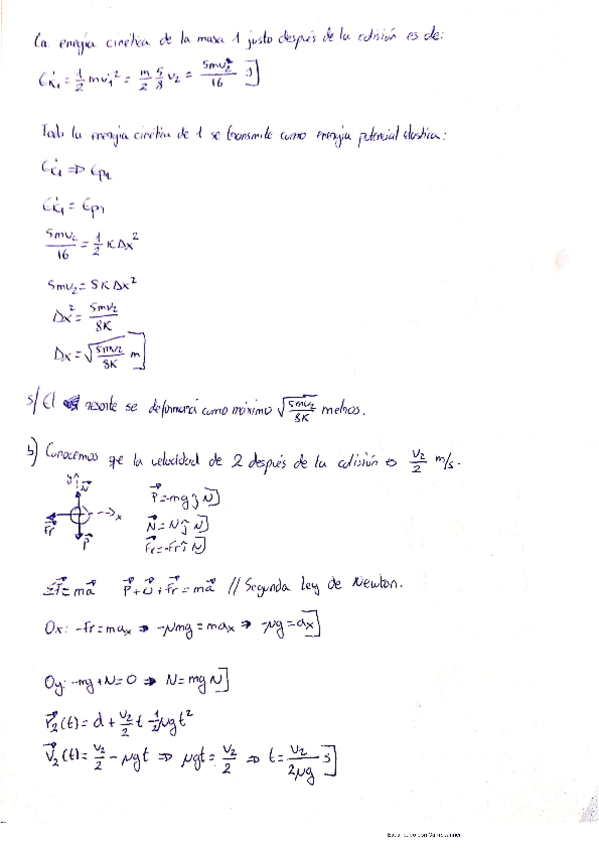 La energía cinética de la masa 1 justo después de la colisión es de:
Ec₁' = 1/2 mv₁'² = m/2 5/8 v₂ = 5mv₂²/16 J]
Toda la energía cinética de 1 se transmite como energía potencial elástica:
Ec₁' => Ep₁
Ec₁' = Ep₁
5mv₂/16 = 1/2 K Δx²
5mv₂ = 8KΔx²
Δx² = 5mv₂/8K
Δx = √(5mv₂/8K) m]
S/ El resorte se deformará como máximo √(5mv₂/8K) metros.
b) Conocemos que la velocidad de 2 después de la colisión es v₂/2 m/s.
y ĵ N
Fr x
P
P = -mg ĵ N]
N = N ĵ N]
Fr = -Fr î N]
ΣF = ma P + N + Fr = ma // Segunda Ley de Newton.
Ox: -Fr = max => -μmg = max => -μg = ax]
Oy: -mg + N = 0 => N = mg N]
r₂(t) = d + v₂/2 t - 1/2 μgt²
V₂(t) = v₂/2 - μgt => μgt = v₂/2 => t = v₂/2μg s]